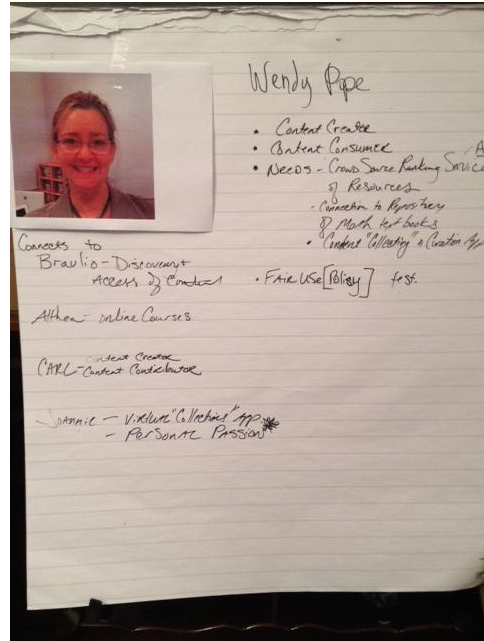 Wendy Pope
• Content Creator
• Content Consumer
• NEEDS - Crowd Source Ranking Service
of Resources
- Connection to Repository
of Math text books
• Content "Collecting" & Curation App
• FAIR USE [Policy] test.
Connects to
Braulio - Discovery +
Access of Content
Althea - online Courses
Content Creator
CARL - Content Contributor
Joannie - Virtual "Collections" App
- PERSONAL PASSION